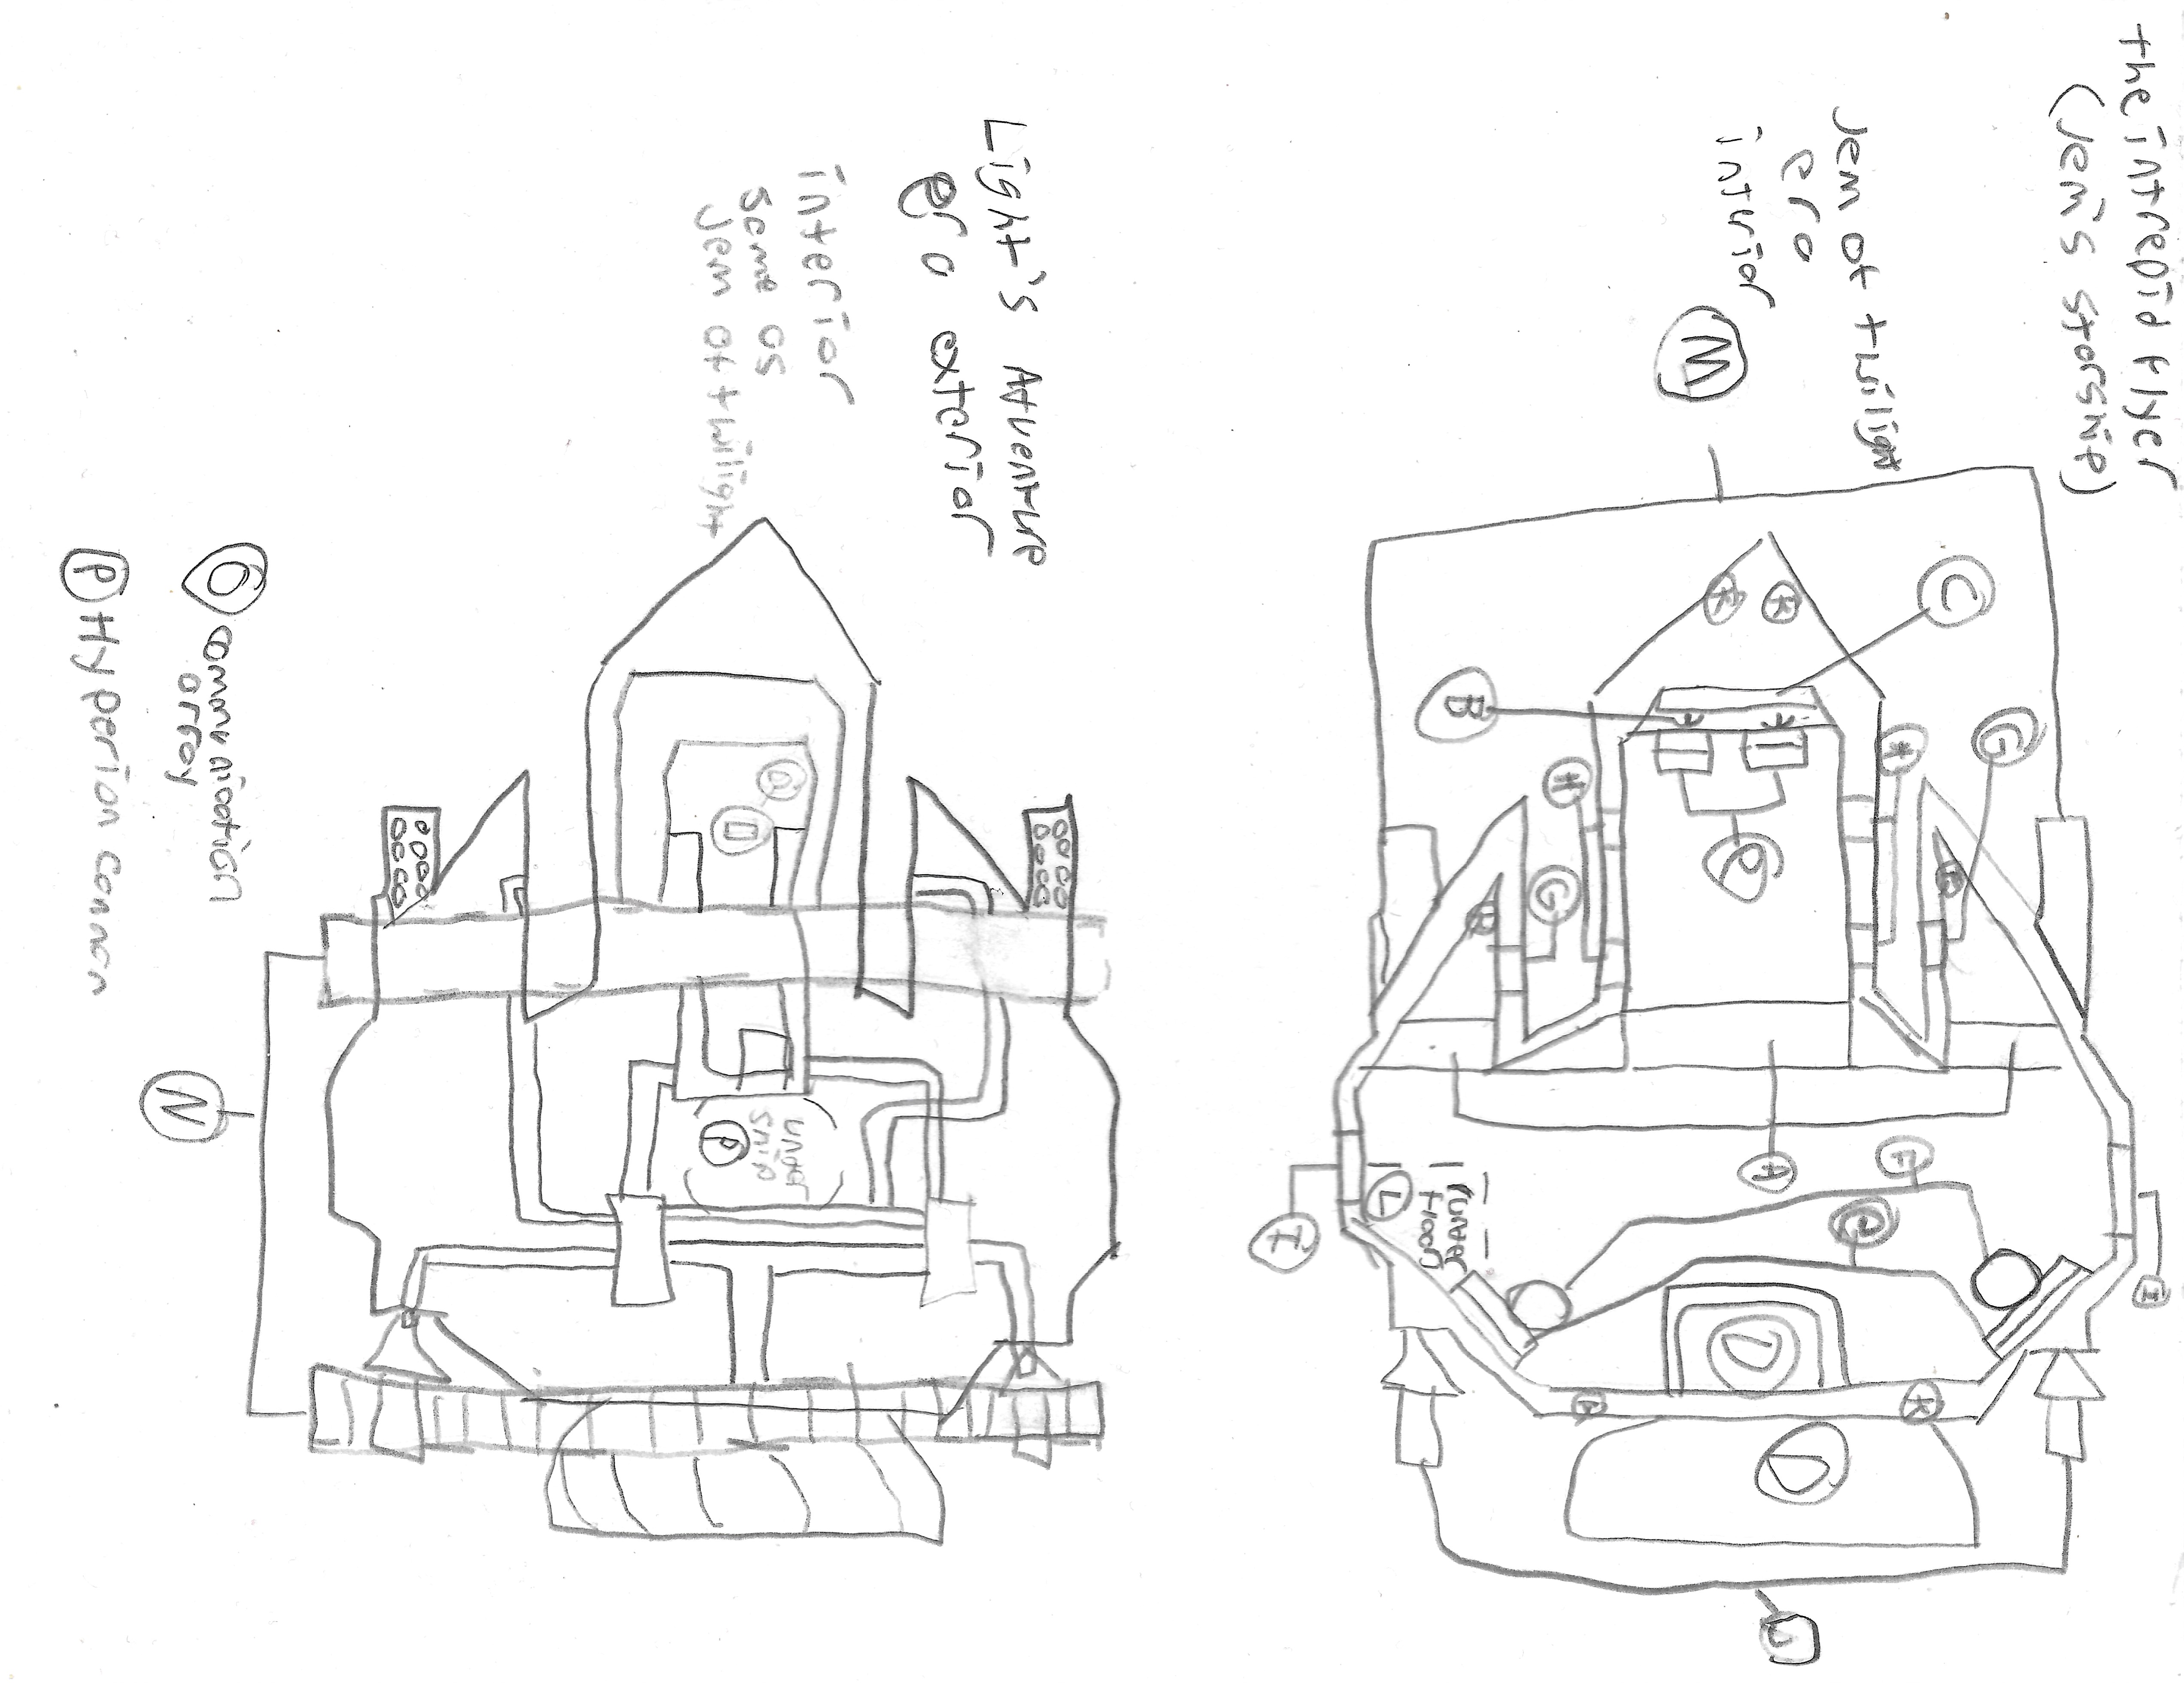 the intrepid flyer
(Jem's starship)
Jem of twilight
era
inturior
M
C
K
K
B
H
G
H
G
K
K
A
F
e
I
I
L
under
floor
D
K
K
D
J
Light's Atventure
era exterior
interior
same as
Jem of twilight
O
under
ship
P
N
O comunication
array
P Hyperion cannon